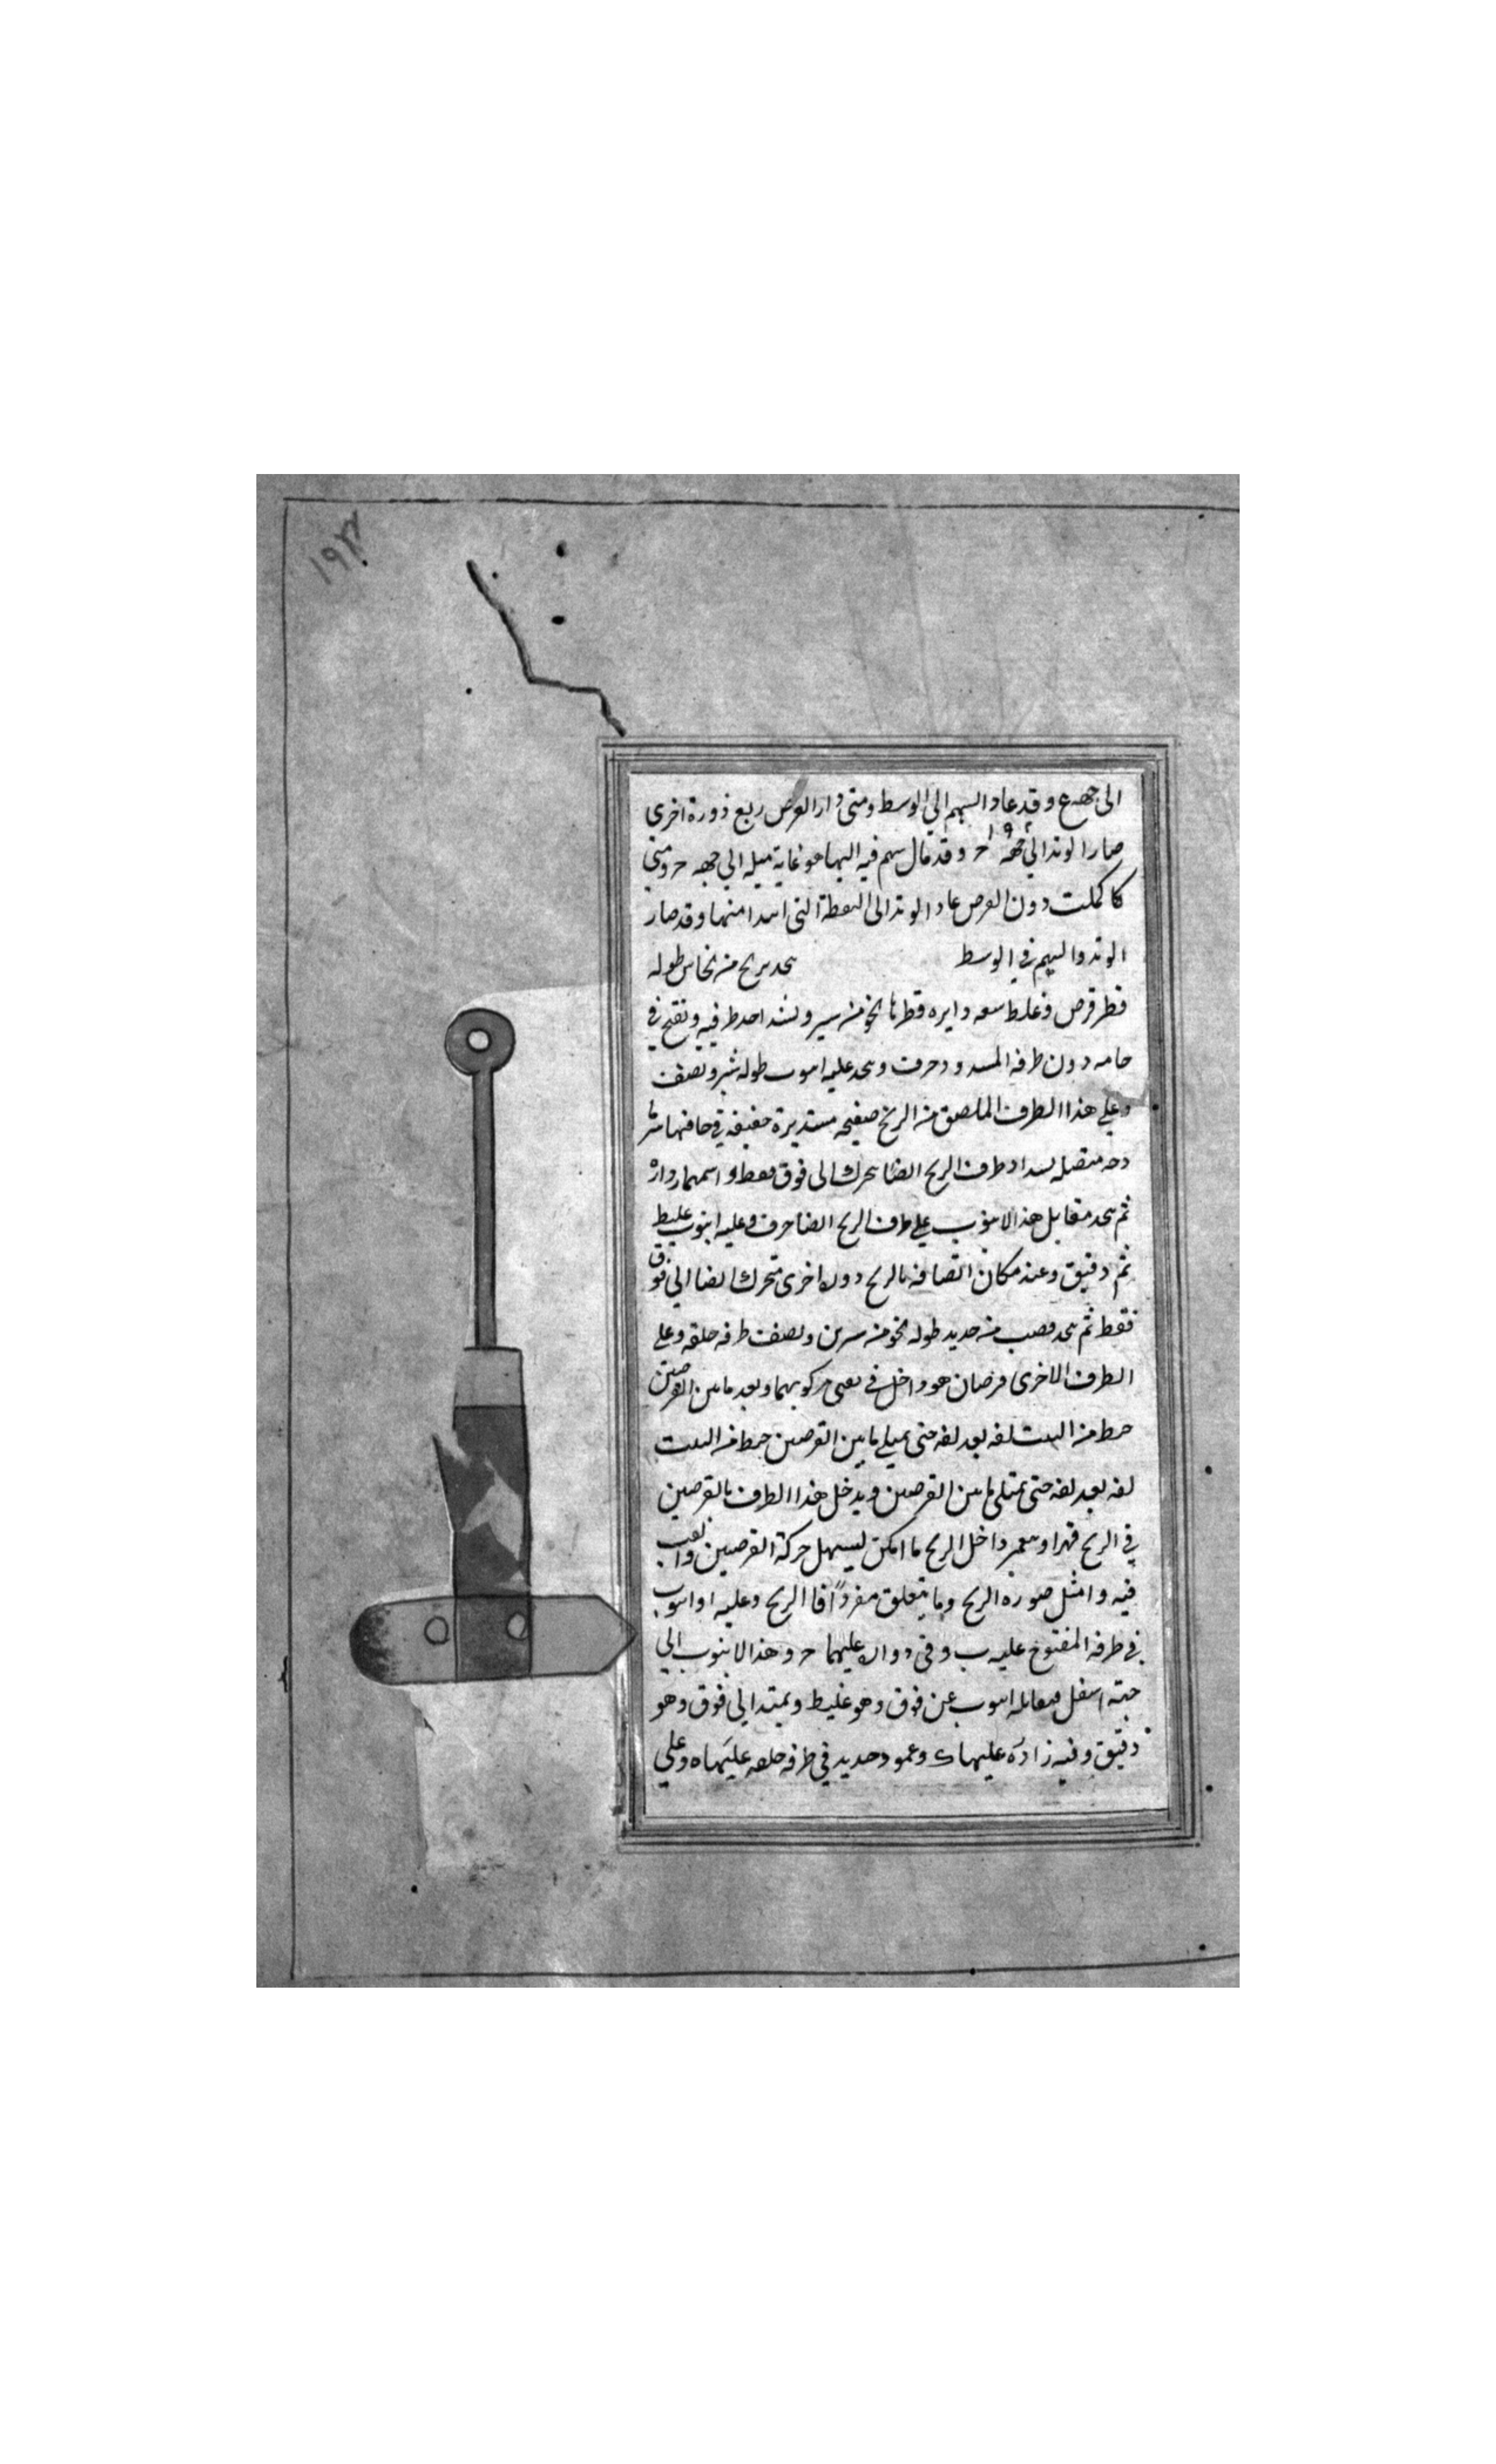 ١٩٢
الى جهة ع وقد عاد السهم الي الوسط ومتى دار القرص ربع دورة اخرى
صار الوتد الي جهة ح وقد مال سهم فيه اليها هو غاية ميله الي جهه ح ومتي
كا كملت دون القرص عاد الوتد الى النقطة التي ابتدا منها وقد صار
الوتد والسهم في الوسط يتخذ بربخ من نحاس طوله
قطر قرص وغلظ سعه دايره قطرها نحو من شبر ويسد احد طرفيه ويفتح في
دون طرفه المسدود خرق ويتخذ عليه انبوب طوله شبر ونصف
وعلي هذا الطرف الملصق من الربخ صفيحه مستديرة خفيفه في حافتها
متصله طرف الربح ايضا تتحرك الى فوق فقط
ثم يتخذ مقابل هذا الانبوب علي طرف الربح ايضا خرق وعليه انبوب غليظ
ثم دقيق وعند مكان التصاقه بالربح اخرى تتحرك ايضا الي فوق
فقط ثم يتخذ قصب من حديد طوله نحو من شبرين ونصف طرفه حلقه وعلي
الطرف الاخرى قرصان هو داخل في مركز بهما وبعد ما بين القرصين
لفه بعد لفه حتى يمتلي ما بين القرصين
لفه بعد لفه حتى يمتلي ما بين القرصين ويدخل هذا الطرف بالقرصين
في الربح قهرا داخل الربح ما امكن ليسهل حركة القرصين
فيه وامثل صوره الربح وما يتعلق مفردًا فا الربح وعليه ا وانبوب
في طرفه المفتوح عليه ب وفي عليهما ح وهذا الانبوب الي
اسفل مقابله انبوب عن فوق وهو غليظ ويمتد الي فوق وهو
دقيق وفيه عليها ك وعمود حديد في طرفه حلقه عليها ه وعلي